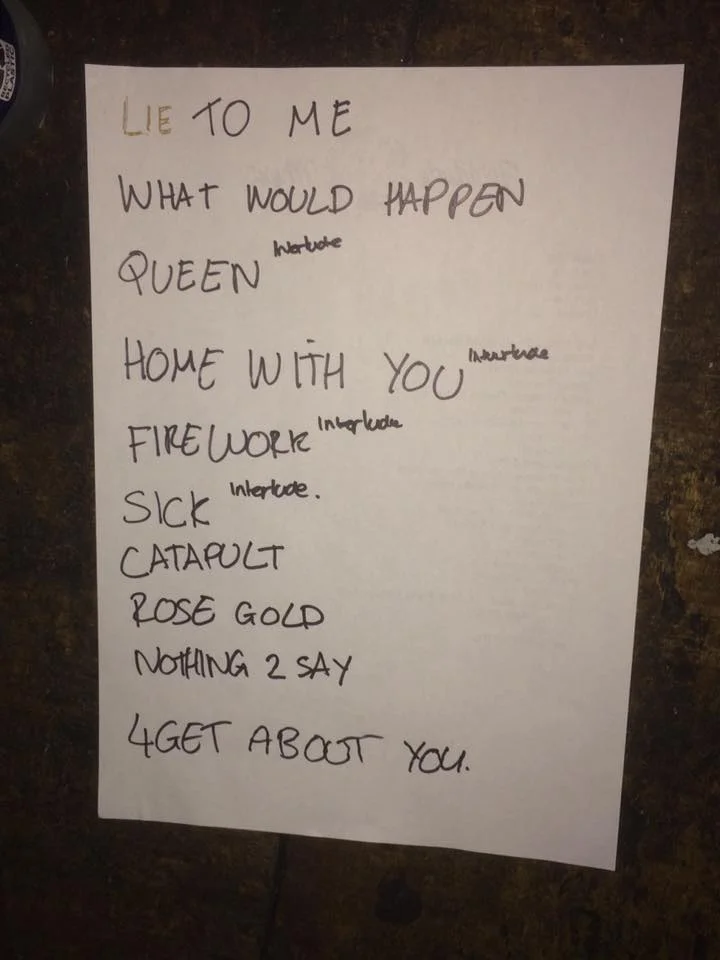 LIE TO ME
WHAT WOULD HAPPEN
QUEEN Interlude
HOME WITH YOU Interlude
FIREWORK Interlude
SICK Interlude.
CATAPULT
ROSE GOLD
NOTHING 2 SAY
4GET ABOUT YOU.